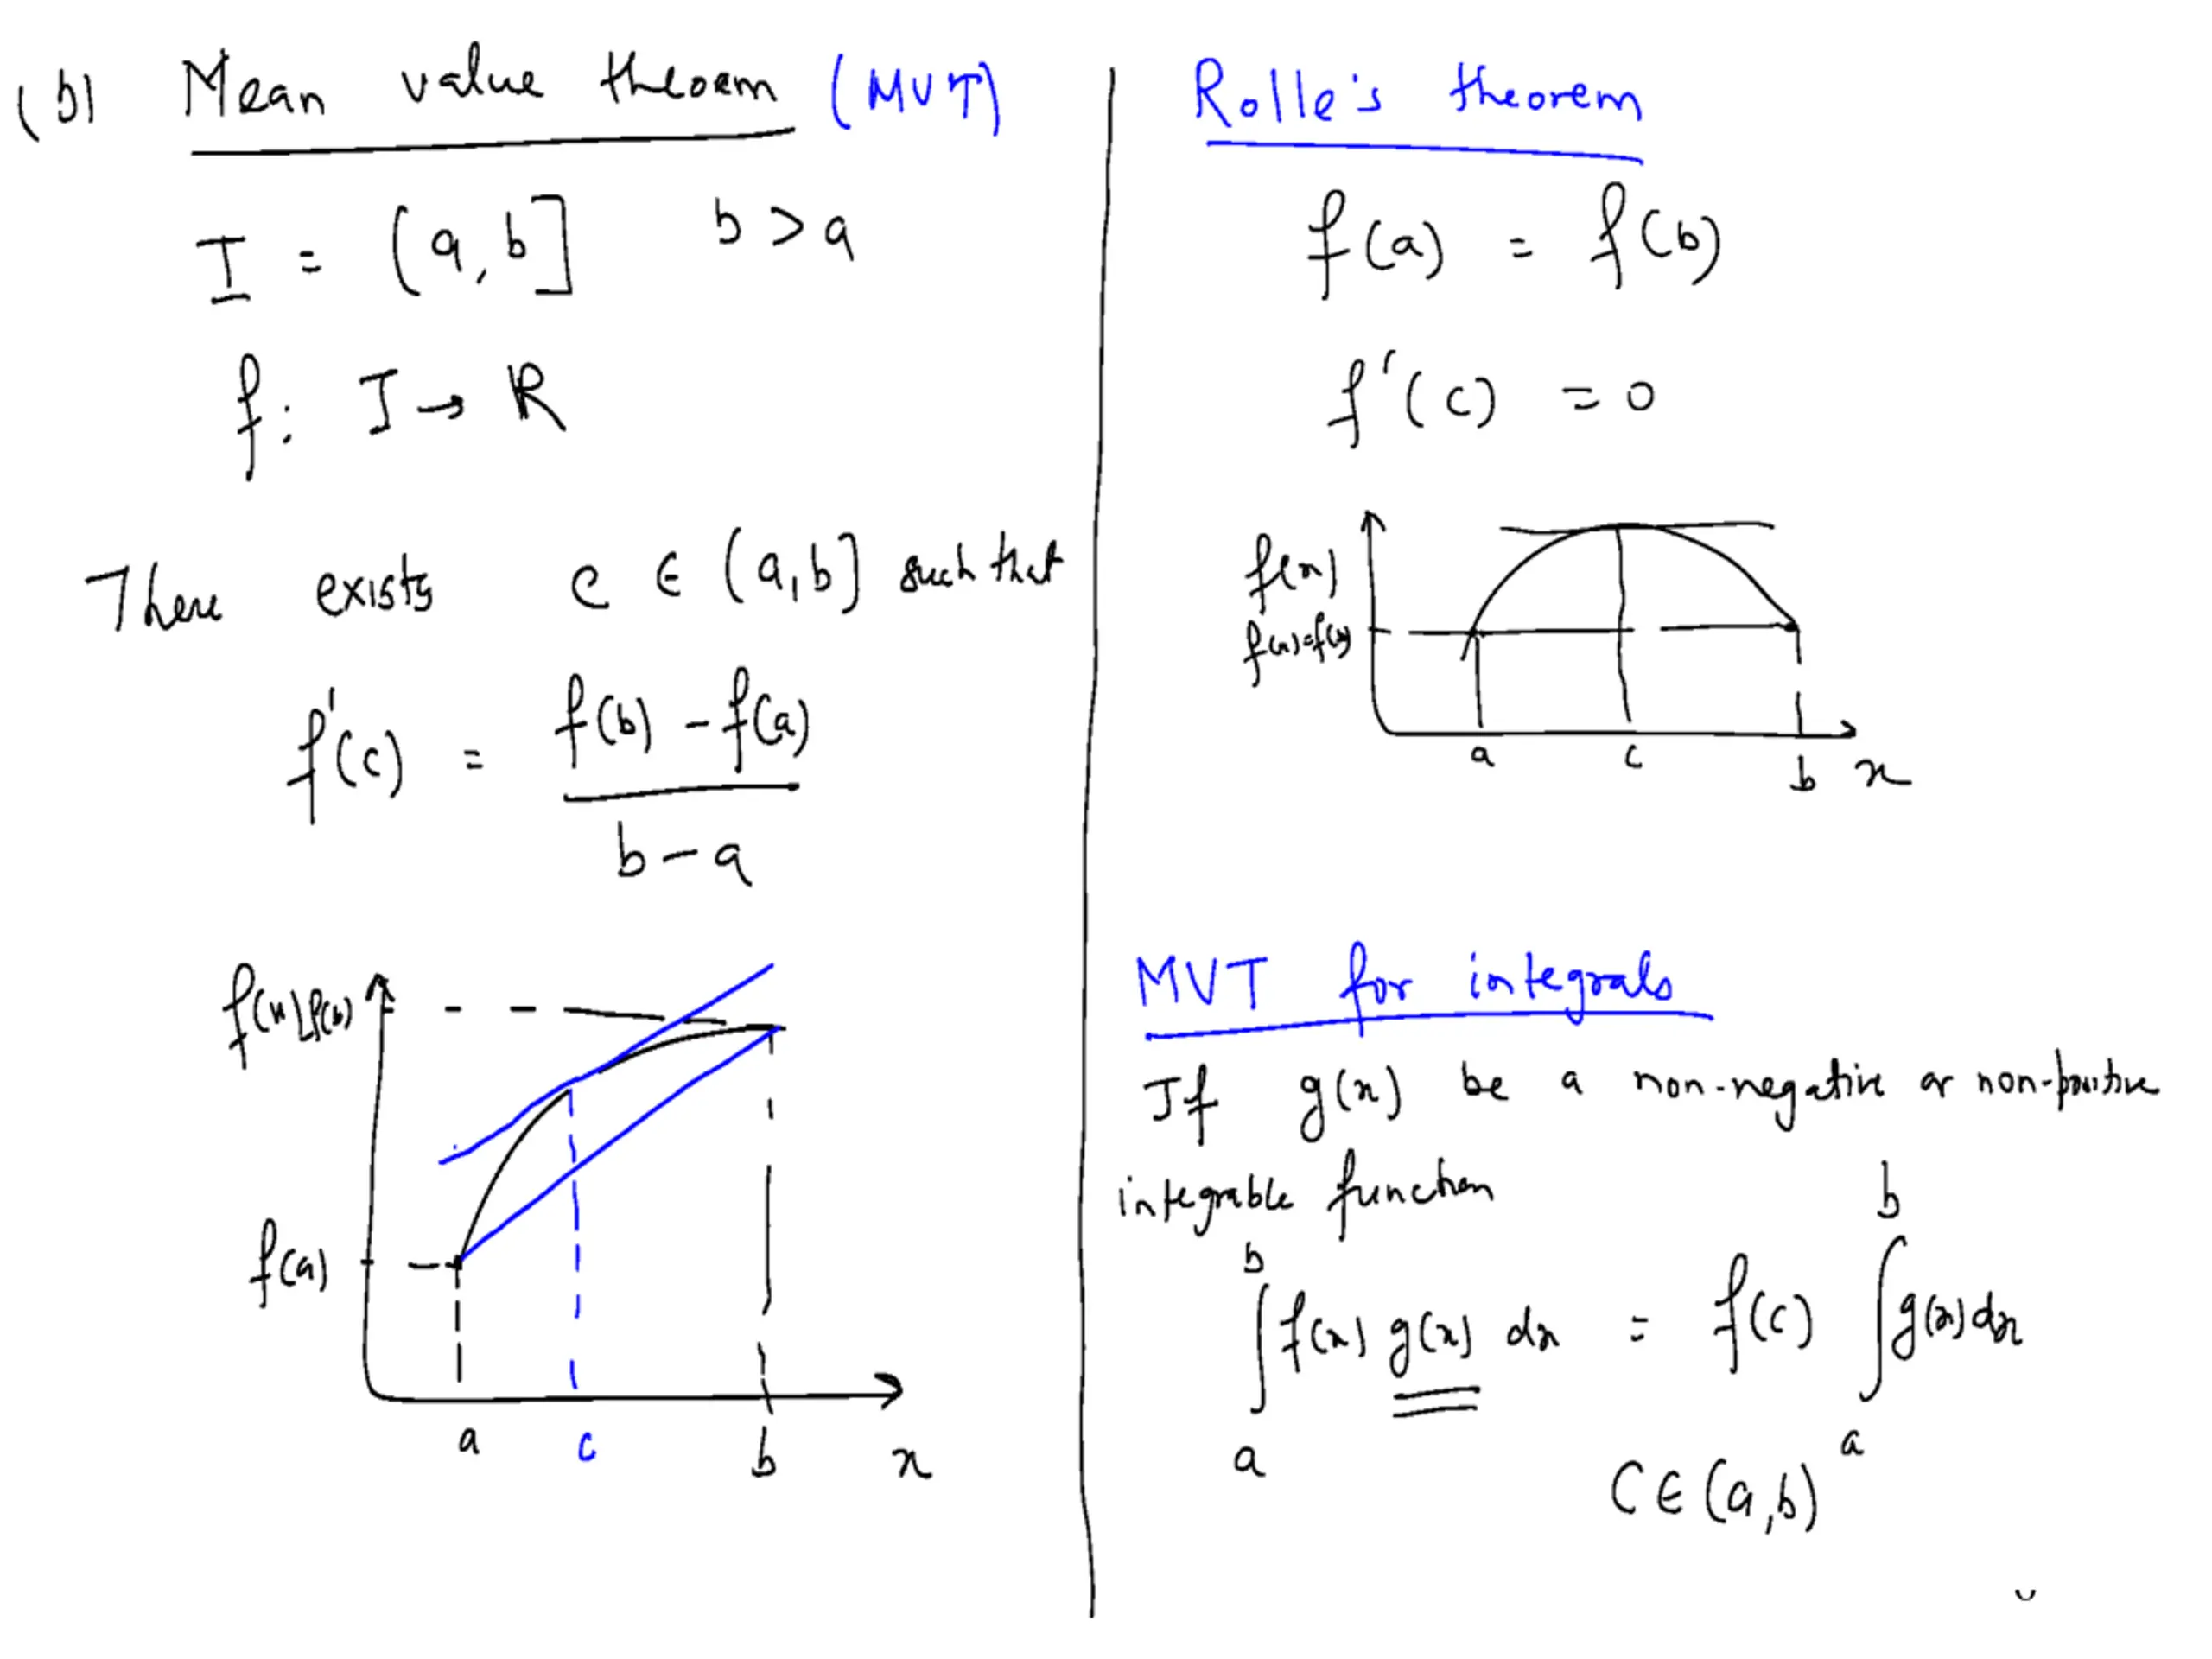 (b) Mean value theorem (MVT)
I = (a, b] b > a
f: I → R
There exists c ∈ (a, b] such that
f'(c) = f(b) - f(a)
b - a
f(x) f(b)
f(a)
a c b x
Rolle's theorem
f(a) = f(b)
f'(c) = 0
f(x)
f(a)=f(b)
a c b x
MVT for integrals
If g(x) be a non-negative or non-positive
integrable function
∫_a^b f(x) g(x) dx = f(c) ∫_a^b g(x) dx
C ∈ (a, b)